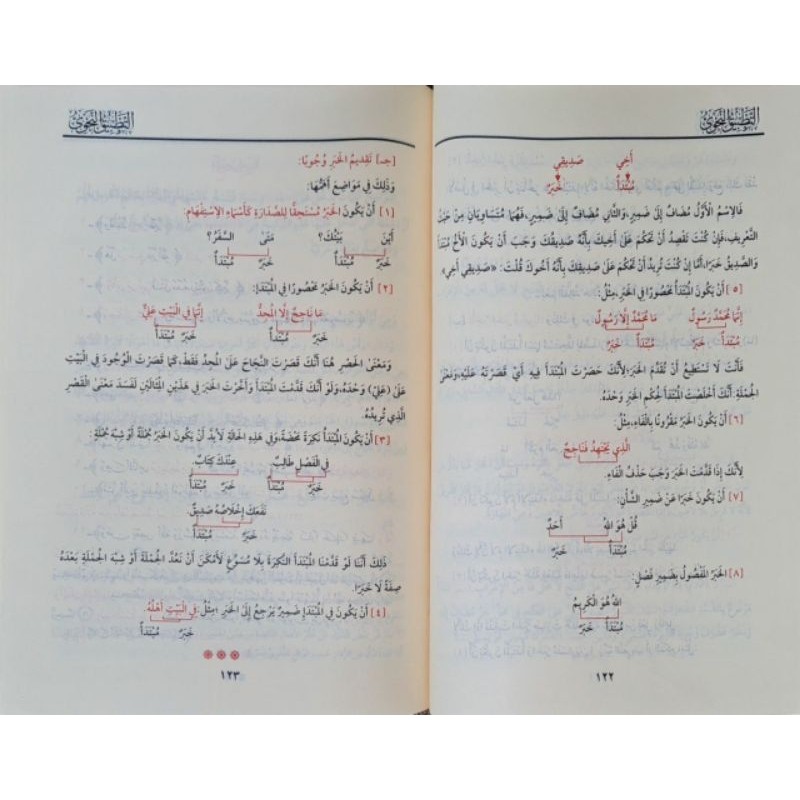 التطبيق النحوي
أَخِي صَدِيقِي
مُبْتَدَأٌ خَبَرٌ
فَالِاسْمُ الْأَوَّلُ مُضَافٌ إِلَى ضَمِيرٍ، وَالثَّانِي مُضَافٌ إِلَى ضَمِيرٍ، فَهُمَا مُتَسَاوِيَانِ مِنْ حَيْثُ
التَّعْرِيفِ، فَإِنْ كُنْتَ تَقْصِدُ أَنْ تَحْكُمَ عَلَى أَخِيكَ بِأَنَّهُ صَدِيقُكَ وَجَبَ أَنْ يَكُونَ الْأَخُ مُبْتَدَأً
وَالصَّدِيقُ خَبَرًا، أَمَّا إِنْ كُنْتَ تُرِيدُ أَنْ تَحْكُمَ عَلَى صَدِيقِكَ بِأَنَّهُ أَخُوكَ قُلْتَ: «صَدِيقِي أَخِي»
[٥] أَنْ يَكُونَ الْمُبْتَدَأُ مَحْصُورًا فِي الْخَبَرِ، مِثْلُ:
إِنَّمَا مُحَمَّدٌ رَسُولٌ مَا مُحَمَّدٌ إِلَّا رَسُولٌ
مُبْتَدَأٌ خَبَرٌ مُبْتَدَأٌ خَبَرٌ
فَأَنْتَ لَا تَسْتَطِيعُ أَنْ تُقَدِّمَ الْخَبَرَ؛ لِأَنَّكَ حَصَرْتَ الْمُبْتَدَأَ فِيهِ أَيْ قَصَرْتَهُ عَلَيْهِ، وَمَعْنَى
الْجُمْلَةِ: أَنَّكَ أَخْلَصْتَ الْمُبْتَدَأَ لِحُكْمِ الْخَبَرِ وَحْدَهُ.
[٦] أَنْ يَكُونَ الْخَبَرُ مَقْرُونًا بِالْفَاءِ، مِثْلُ:
الَّذِي يَجْتَهِدُ فَنَاجِحٌ
مُبْتَدَأٌ خَبَرٌ
لِأَنَّكَ إِذَا قَدَّمْتَ الْخَبَرَ وَجَبَ حَذْفُ الْفَاءِ.
[٧] أَنْ يَكُونَ خَبَرًا عَنْ ضَمِيرِ الشَّأْنِ:
قُلْ هُوَ اللهُ أَحَدٌ
مُبْتَدَأٌ خَبَرٌ
[٨] الْخَبَرُ الْمَفْصُولُ بِضَمِيرِ فَصْلٍ:
اللهُ هُوَ الْكَرِيمُ
مُبْتَدَأٌ خَبَرٌ
١٢٢
التطبيق النحوي
[جـ] تَقْدِيمُ الْخَبَرِ وُجُوبًا:
وَذَلِكَ فِي مَوَاضِعَ أَهَمُّهَا:
[١] أَنْ يَكُونَ الْخَبَرُ مُسْتَحِقًّا لِلصَّدَارَةِ كَأَسْمَاءِ الِاسْتِفْهَامِ:
أَيْنَ بَيْتُكَ؟ مَتَى السَّفَرُ؟
خَبَرٌ مُبْتَدَأٌ خَبَرٌ مُبْتَدَأٌ
[٢] أَنْ يَكُونَ الْخَبَرُ مَحْصُورًا فِي الْمُبْتَدَإِ:
مَا نَاجِحٌ إِلَّا الْمُجِدُّ إِنَّمَا فِي الْبَيْتِ عَلِيٌّ
خَبَرٌ مُبْتَدَأٌ خَبَرٌ مُبْتَدَأٌ
وَمَعْنَى الْحَصْرِ هُنَا أَنَّكَ قَصَرْتَ النَّجَاحَ عَلَى الْمُجِدِّ فَقَطْ، كَمَا قَصَرْتَ الْوُجُودَ فِي الْبَيْتِ
عَلَى (عَلِيٍّ) وَحْدَهُ، وَلَوْ أَنَّكَ قَدَّمْتَ الْمُبْتَدَأَ وَأَخَّرْتَ الْخَبَرَ فِي هَذَيْنِ الْمِثَالَيْنِ لَفَسَدَ مَعْنَى الْقَصْرِ
الَّذِي تُرِيدُهُ.
[٣] أَنْ يَكُونَ الْمُبْتَدَأُ نَكِرَةً مَحْضَةً، وَفِي هَذِهِ الْحَالَةِ لَابُدَّ أَنْ يَكُونَ الْخَبَرُ جُمْلَةً أَوْ شِبْهَ جُمْلَةٍ:
فِي الْفَصْلِ طَالِبٌ عِنْدَكَ كِتَابٌ
خَبَرٌ مُبْتَدَأٌ خَبَرٌ مُبْتَدَأٌ
نَفَعَكَ إِخْلَاصُهُ صَدِيقٌ
خَبَرٌ مُبْتَدَأٌ
ذَلِكَ أَنَّنَا لَوْ قَدَّمْنَا الْمُبْتَدَأَ النَّكِرَةَ بِلَا مُسَوِّغٍ لَأَمْكَنَ أَنْ نَعُدَّ الْجُمْلَةَ أَوْ شِبْهَ الْجُمْلَةِ بَعْدَهُ
صِفَةً لَا خَبَرًا.
[٤] أَنْ يَكُونَ فِي الْمُبْتَدَإِ ضَمِيرٌ يَرْجِعُ إِلَى الْخَبَرِ، مِثْلُ: فِي الْبَيْتِ أَهْلُهُ
خَبَرٌ مُبْتَدَأٌ
١٢٣